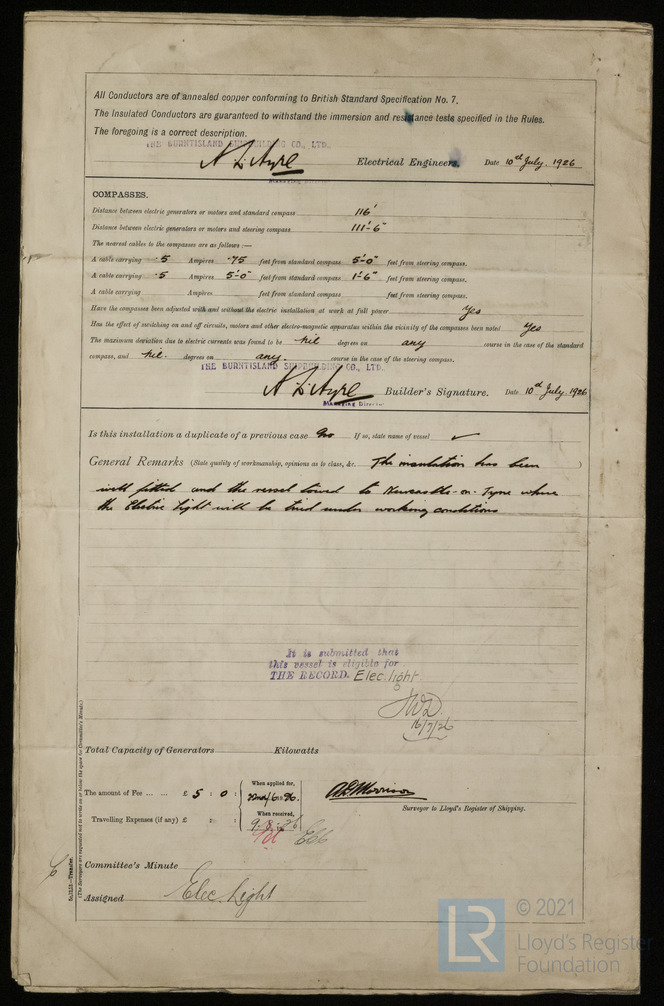 All Conductors are of annealed copper conforming to British Standard Specification No. 7.
The Insulated Conductors are guaranteed to withstand the immersion and resistance tests specified in the Rules.
The foregoing is a correct description.
THE BURNTISLAND SHIPBUILDING CO., LTD.
Electrical Engineers. Date 10th July. 1926
COMPASSES.
Distance between electric generators or motors and standard compass 116'
Distance between electric generators or motors and steering compass 111'-6"
The nearest cables to the compasses are as follows :—
A cable carrying .5 Ampères .75 feet from standard compass 5'-0" feet from steering compass.
A cable carrying .5 Ampères 5'-0" feet from standard compass 1'-6" feet from steering compass.
A cable carrying Ampères feet from standard compass feet from steering compass.
Have the compasses been adjusted with and without the electric installation at work at full power Yes
Has the effect of switching on and off circuits, motors and other electro-magnetic apparatus within the vicinity of the compasses been noted Yes
The maximum deviation due to electric currents was found to be Nil degrees on any course in the case of the standard
compass, and Nil. degrees on any. course in the case of the steering compass.
THE BURNTISLAND SHIPBUILDING CO., LTD.
Builder's Signature. Date 10th July. 1926
Managing Director
Is this installation a duplicate of a previous case No If so, state name of vessel
General Remarks (State quality of workmanship, opinions as to class, &c. The insulation has been )
well fitted and the vessel towed to Newcastle-on-Tyne where
the Electric Light will be tried under working conditions
It is submitted that
this vessel is eligible for
THE RECORD. Elec. light
16/7/26
Total Capacity of Generators Kilowatts
The amount of Fee ... ... £ 5 : 0 : When applied for,
A.D. Morrison
Surveyor to Lloyd's Register of Shipping.
Travelling Expenses (if any) £ : : When received,
9.8.26
Committee's Minute
Assigned Elec. Light
(The Surveyors are requested not to write on or below the space for Committee's Minute.)
© 2021
LR Lloyd's Register
Foundation